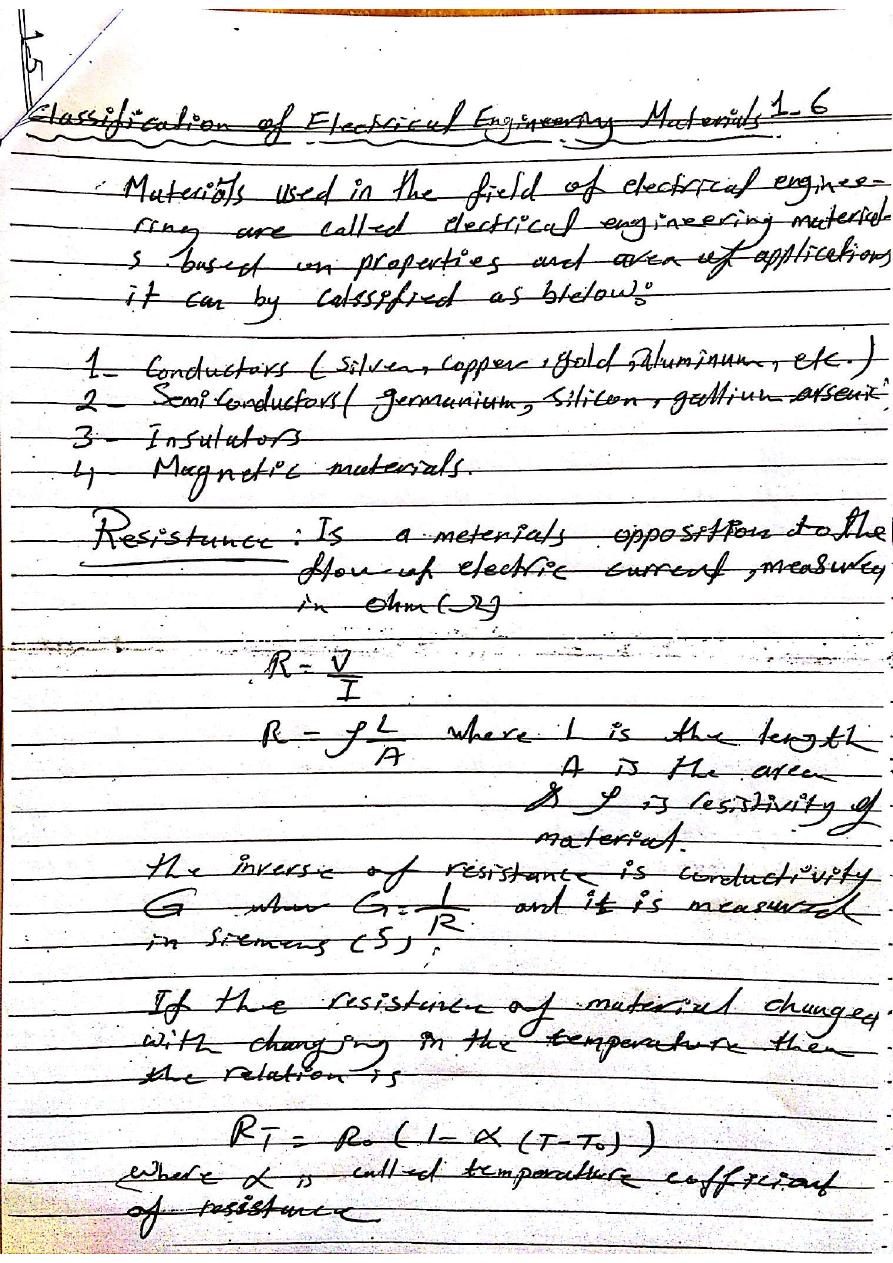 1-5
Classification of Electrical Engineering Materials 1-6
Materials used in the field of electrical enginee-
ring are called electrical engineering material-
s based on properties and area of applications
it can by calssified as blelow:
1- Conductors (Silver, Copper, gold, Aluminum, etc.)
2- Semi Conductors( germanium, Silicon, gallium arsenic
3- Insulators
4- Magnetic materials.
Resistance: Is a meterials opposition to the
flow of electric current, measured
in ohm (Ω)
R = V/I
R = ρ L/A where L is the length
A is the area
& ρ is resistivity of
material.
the inverse of resistance is conductivity
G where G = 1/R and it is measured
in Siemens (S)
If the resistance of material changed
with changing in the temperature then
the relation is
RT = R₀ (1 - α (T-T₀))
where α is called temperature coefficient
of resistance